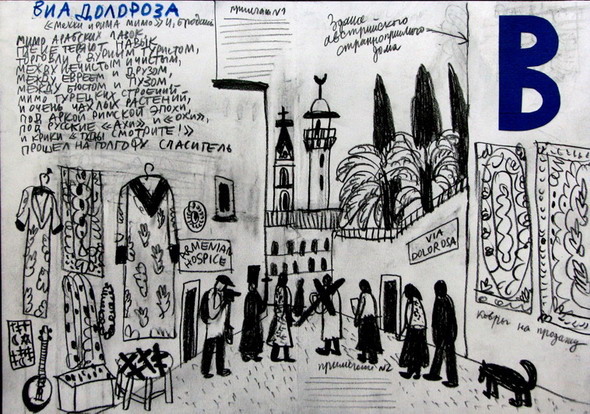 ВИА ДОЛОРОЗА
«МЕККИ И РИМА МИМО» И, БРОДЯЩИЙ
МИМО АРАБСКИХ ЛАВОК,
ГДЕ НЕ ТЕРЯЮТ НАВЫК
ТОРГОВЛИ С ДУРНЫМ ТУРИСТОМ,
МЕЖДУ НЕЧИСТЫМ И ЧИСТЫМ,
МЕЖДУ ЕВРЕЕМ И ДРУЗОМ,
МЕЖДУ БЮСТОМ И
МИМО ТУРЕЦКИХ СТРОЕНИЙ
И ОЧЕНЬ ЧАХЛЫХ РАСТЕНИЙ,
ПОД АРКОЙ РИМСКОЙ ЭПОХИ,
ПОД РУССКИЕ «АХИ» И «ОХИ»,
И КРИКИ «ТУДЫ СМОТРИТЕ!»
ПРОШЕЛ НА ГОЛГОФУ СПАСИТЕЛЬ
примечание №1
Здание
австрийского
странноприимного
дома
В
VIA
DOLOROSA
ARMENIAN
HOSPICE
ковры на продажу
примечание №2